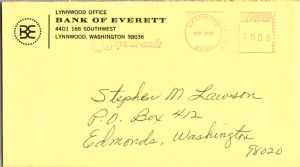 LYNNWOOD OFFICE
BANK OF EVERETT
4401 168 SOUTHWEST
LYNNWOOD, WASHINGTON 98036
BE
LYNNWOOD
WASH.
U.S. POSTAGE
Stephen M. Lawson
P.O. Box 412
Edmonds, Washington
98020